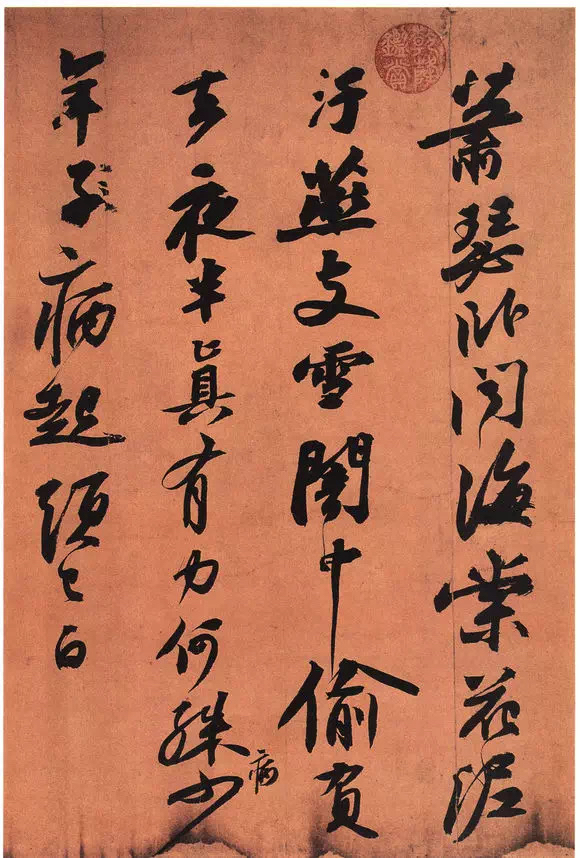 蕭瑟臥聞海棠花泥
汙燕支雪闇中偷負
去夜半眞有力何殊少
病
年子病起頭已白
乾隆鑑賞